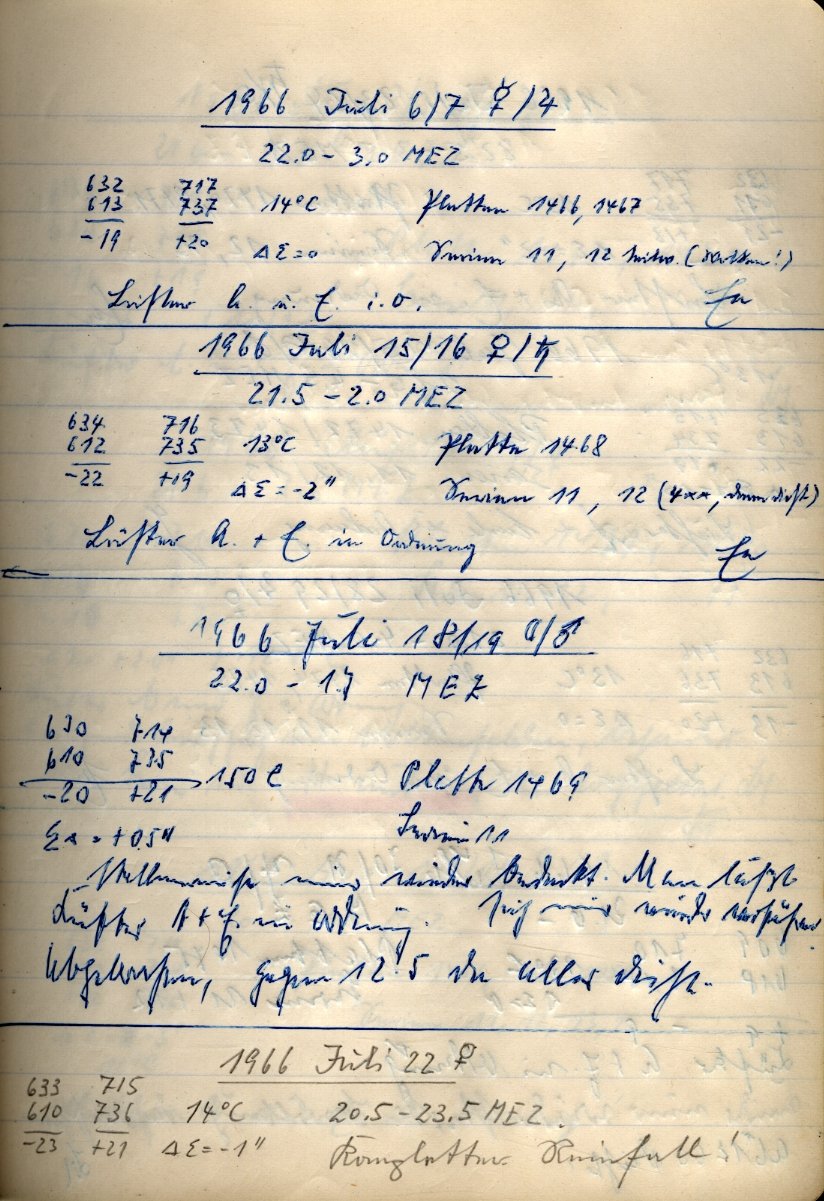 1966 Juli 6/7 ☿/♃
22.0 – 3.0 MEZ
632 717
613 737 14°C Platten 1466, 1467
-19 +20
ΔΣ=0 Serien 11, 12 teilw. (Wolken!)
Lüfter A. u. E. i. O.
1966 Juli 15/16 ♀/♄
21.5 – 2.0 MEZ
634 716
612 735 13°C Platte 1468
-22 +19
ΔΣ = -2" Serien 11, 12 (4**, dann dicht)
Lüfter A. + E. in Ordnung
1966 Juli 18/19 /♂
22.0 – 1.7 MEZ
630 714
610 735
-20 +21 15°C Platte 1469
= +0.5" Serie 11
mir wieder bedeckt. Man läßt
Lüfter A+E. in Ordnung. sich nur wieder verführen
Abgebrochen, gegen 12.5 da alles dicht.
1966 Juli 22 ♀
633 715
610 736 14°C 20.5 – 23.5 MEZ.
-23 +21 ΔΣ = -1" Kompletter Reinfall!